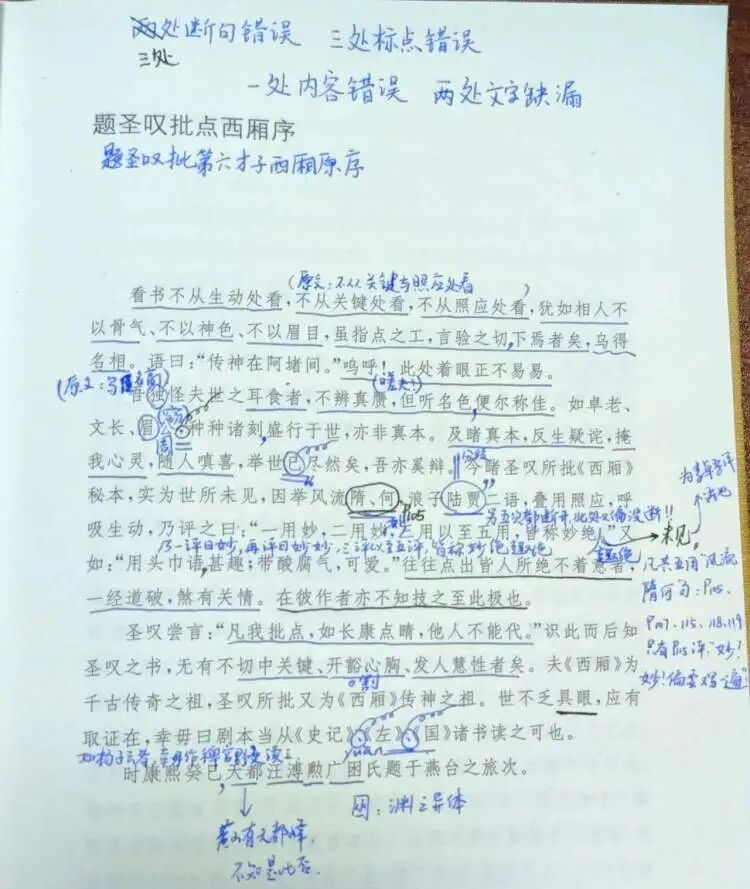 两处断句错误 三处标点错误
三处
一处内容错误 两处文字缺漏
题圣叹批点西厢序
题圣叹批第六才子西厢原序
(原文:不从关键与照应处看)
看书不从生动处看,不从关键处看,不从照应处看,犹如相人不
以骨气、不以神色、不以眉目,虽指点之工,言验之切下焉者矣,乌得
名相。语曰:“传神在阿堵间。”呜呼!此处着眼正不易易。
吾独怪夫世之耳食者,不辨真赝,但听名色便尔称佳。如卓老、
文长、眉公种种诸刻盛行于世,亦非真本。及睹真本,反生疑诧,掩
我心灵,随人嗔喜,举世已尽然矣,吾亦奚辩。今睹圣叹所批《西厢》
秘本,实为世所未见,因举风流隋、何,浪子陆贾二语,叠用照应,呼
吸生动,乃评之曰:“一用妙,二用妙,三用以至五用,皆称妙绝”,又
乃一评曰妙,再评曰妙妙,三评以至五评,皆称妙绝趣绝
如:“用头巾语甚趣;带酸腐气,可爱。”往往点出皆人所绝不着意者,
一经道破,煞有关情。在彼作者亦不知技之至此极也。
圣叹尝言:“凡我批点,如长康点睛,他人不能代。”识此而后知
圣叹之书,无有不切中关键、开豁心胸、发人慧性者矣。夫《西厢》为
千古传奇之祖,圣叹所批又为《西厢》传神之祖。世不乏具眼,应有
取证在,幸毋曰剧本当从《史记》《左》《国》诸书读之可也。
时康熙癸巳天都汪溥勲广囦氏题于燕台之旅次。
囦:渊之异体
黄山有天都峰
不知是此否.